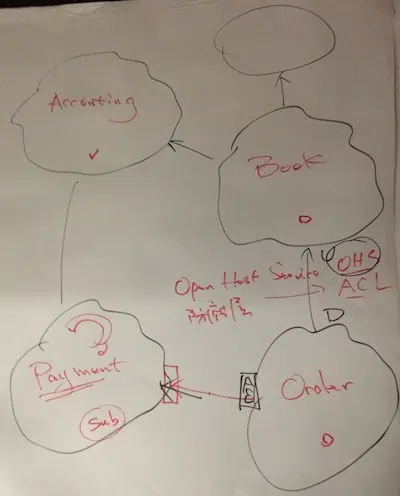 Accounting
Book
U
OHS
Open Host Service
ACL
D
Payment
Sub
Order